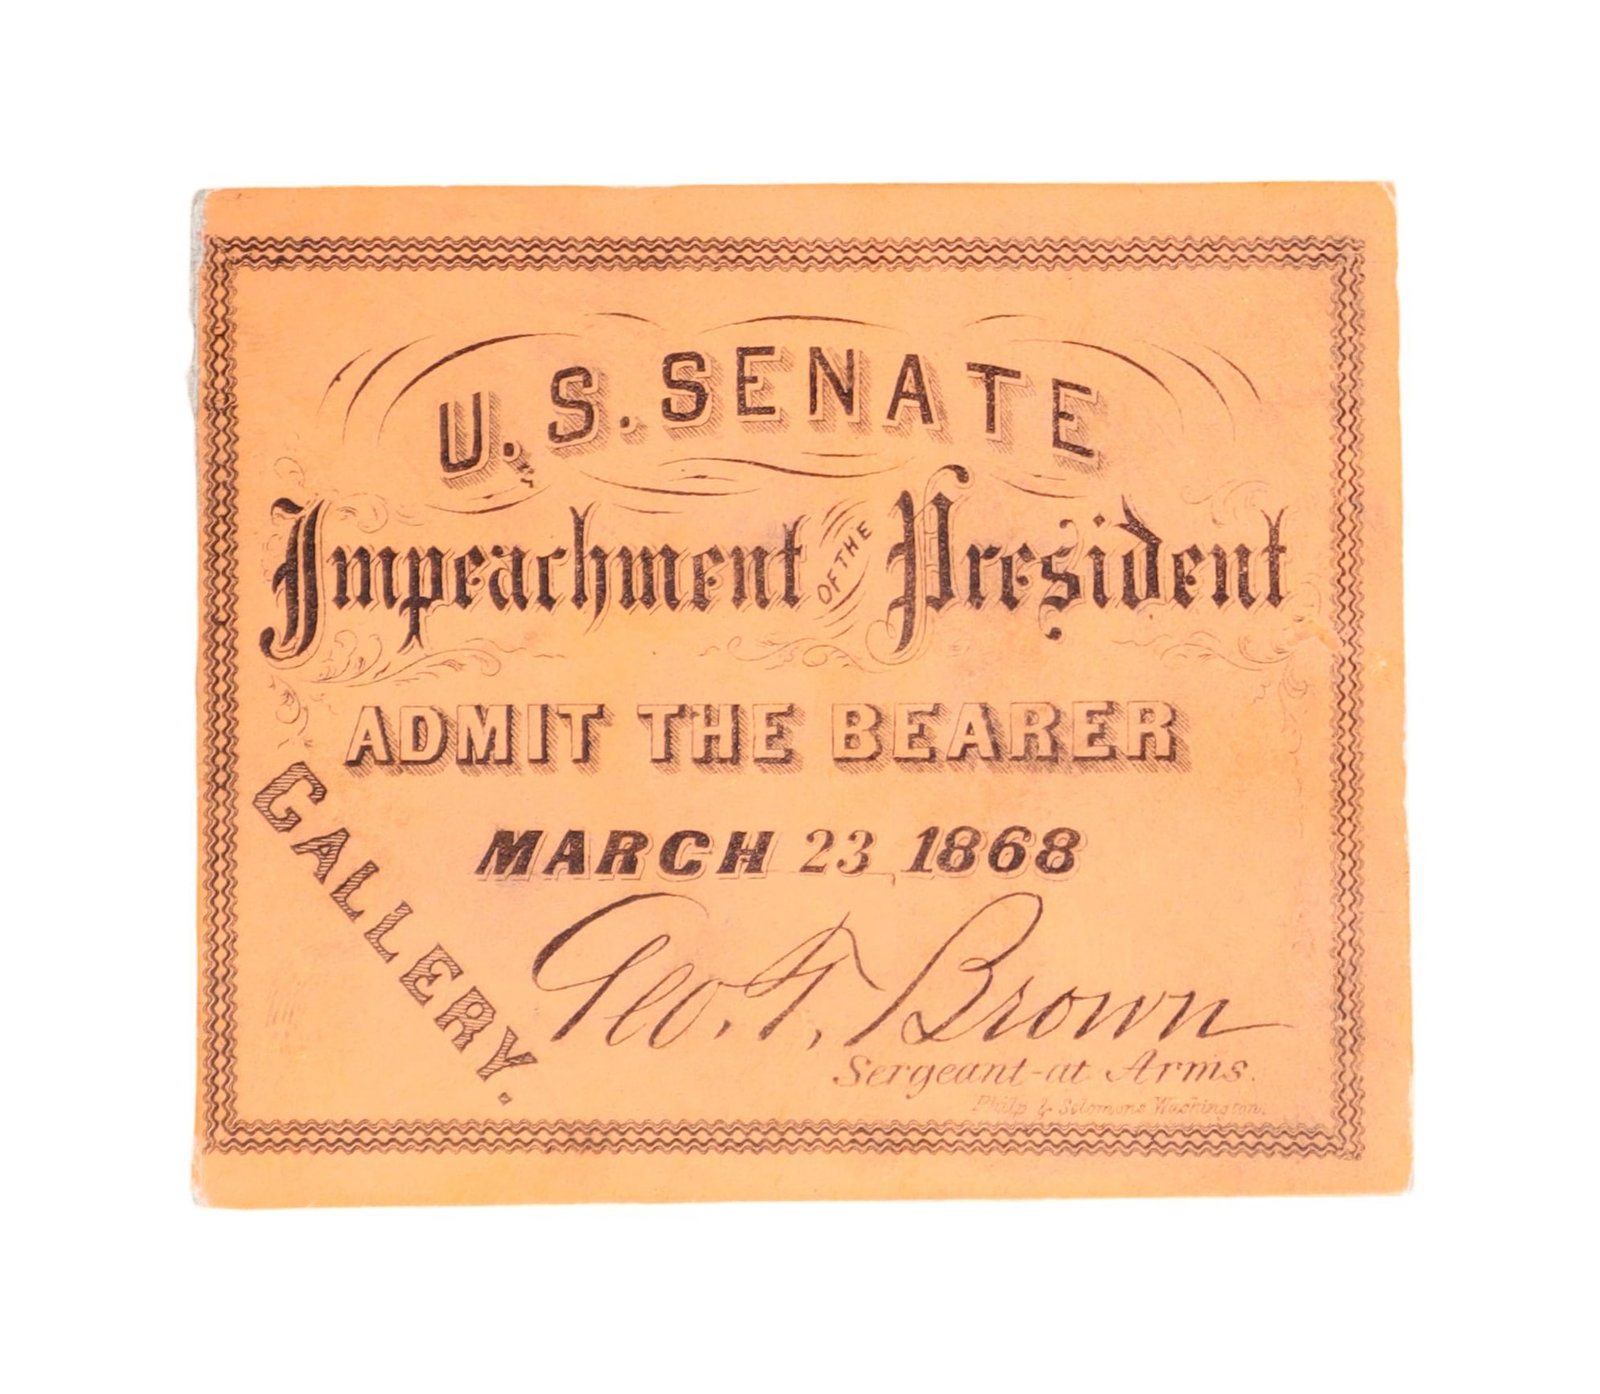 U.S. SENATE
Impeachment OF THE President
ADMIT THE BEARER
GALLERY.
MARCH 23 1868
Geo. T. Brown
Sergeant-at Arms.
Philp & Solomons Washington.